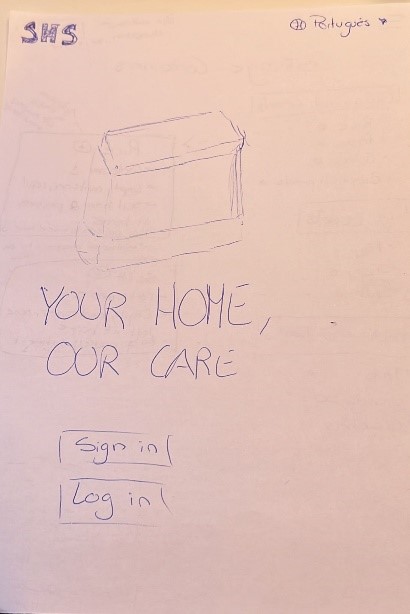 SHS
Português
YOUR HOME,
OUR CARE
Sign in
Log in